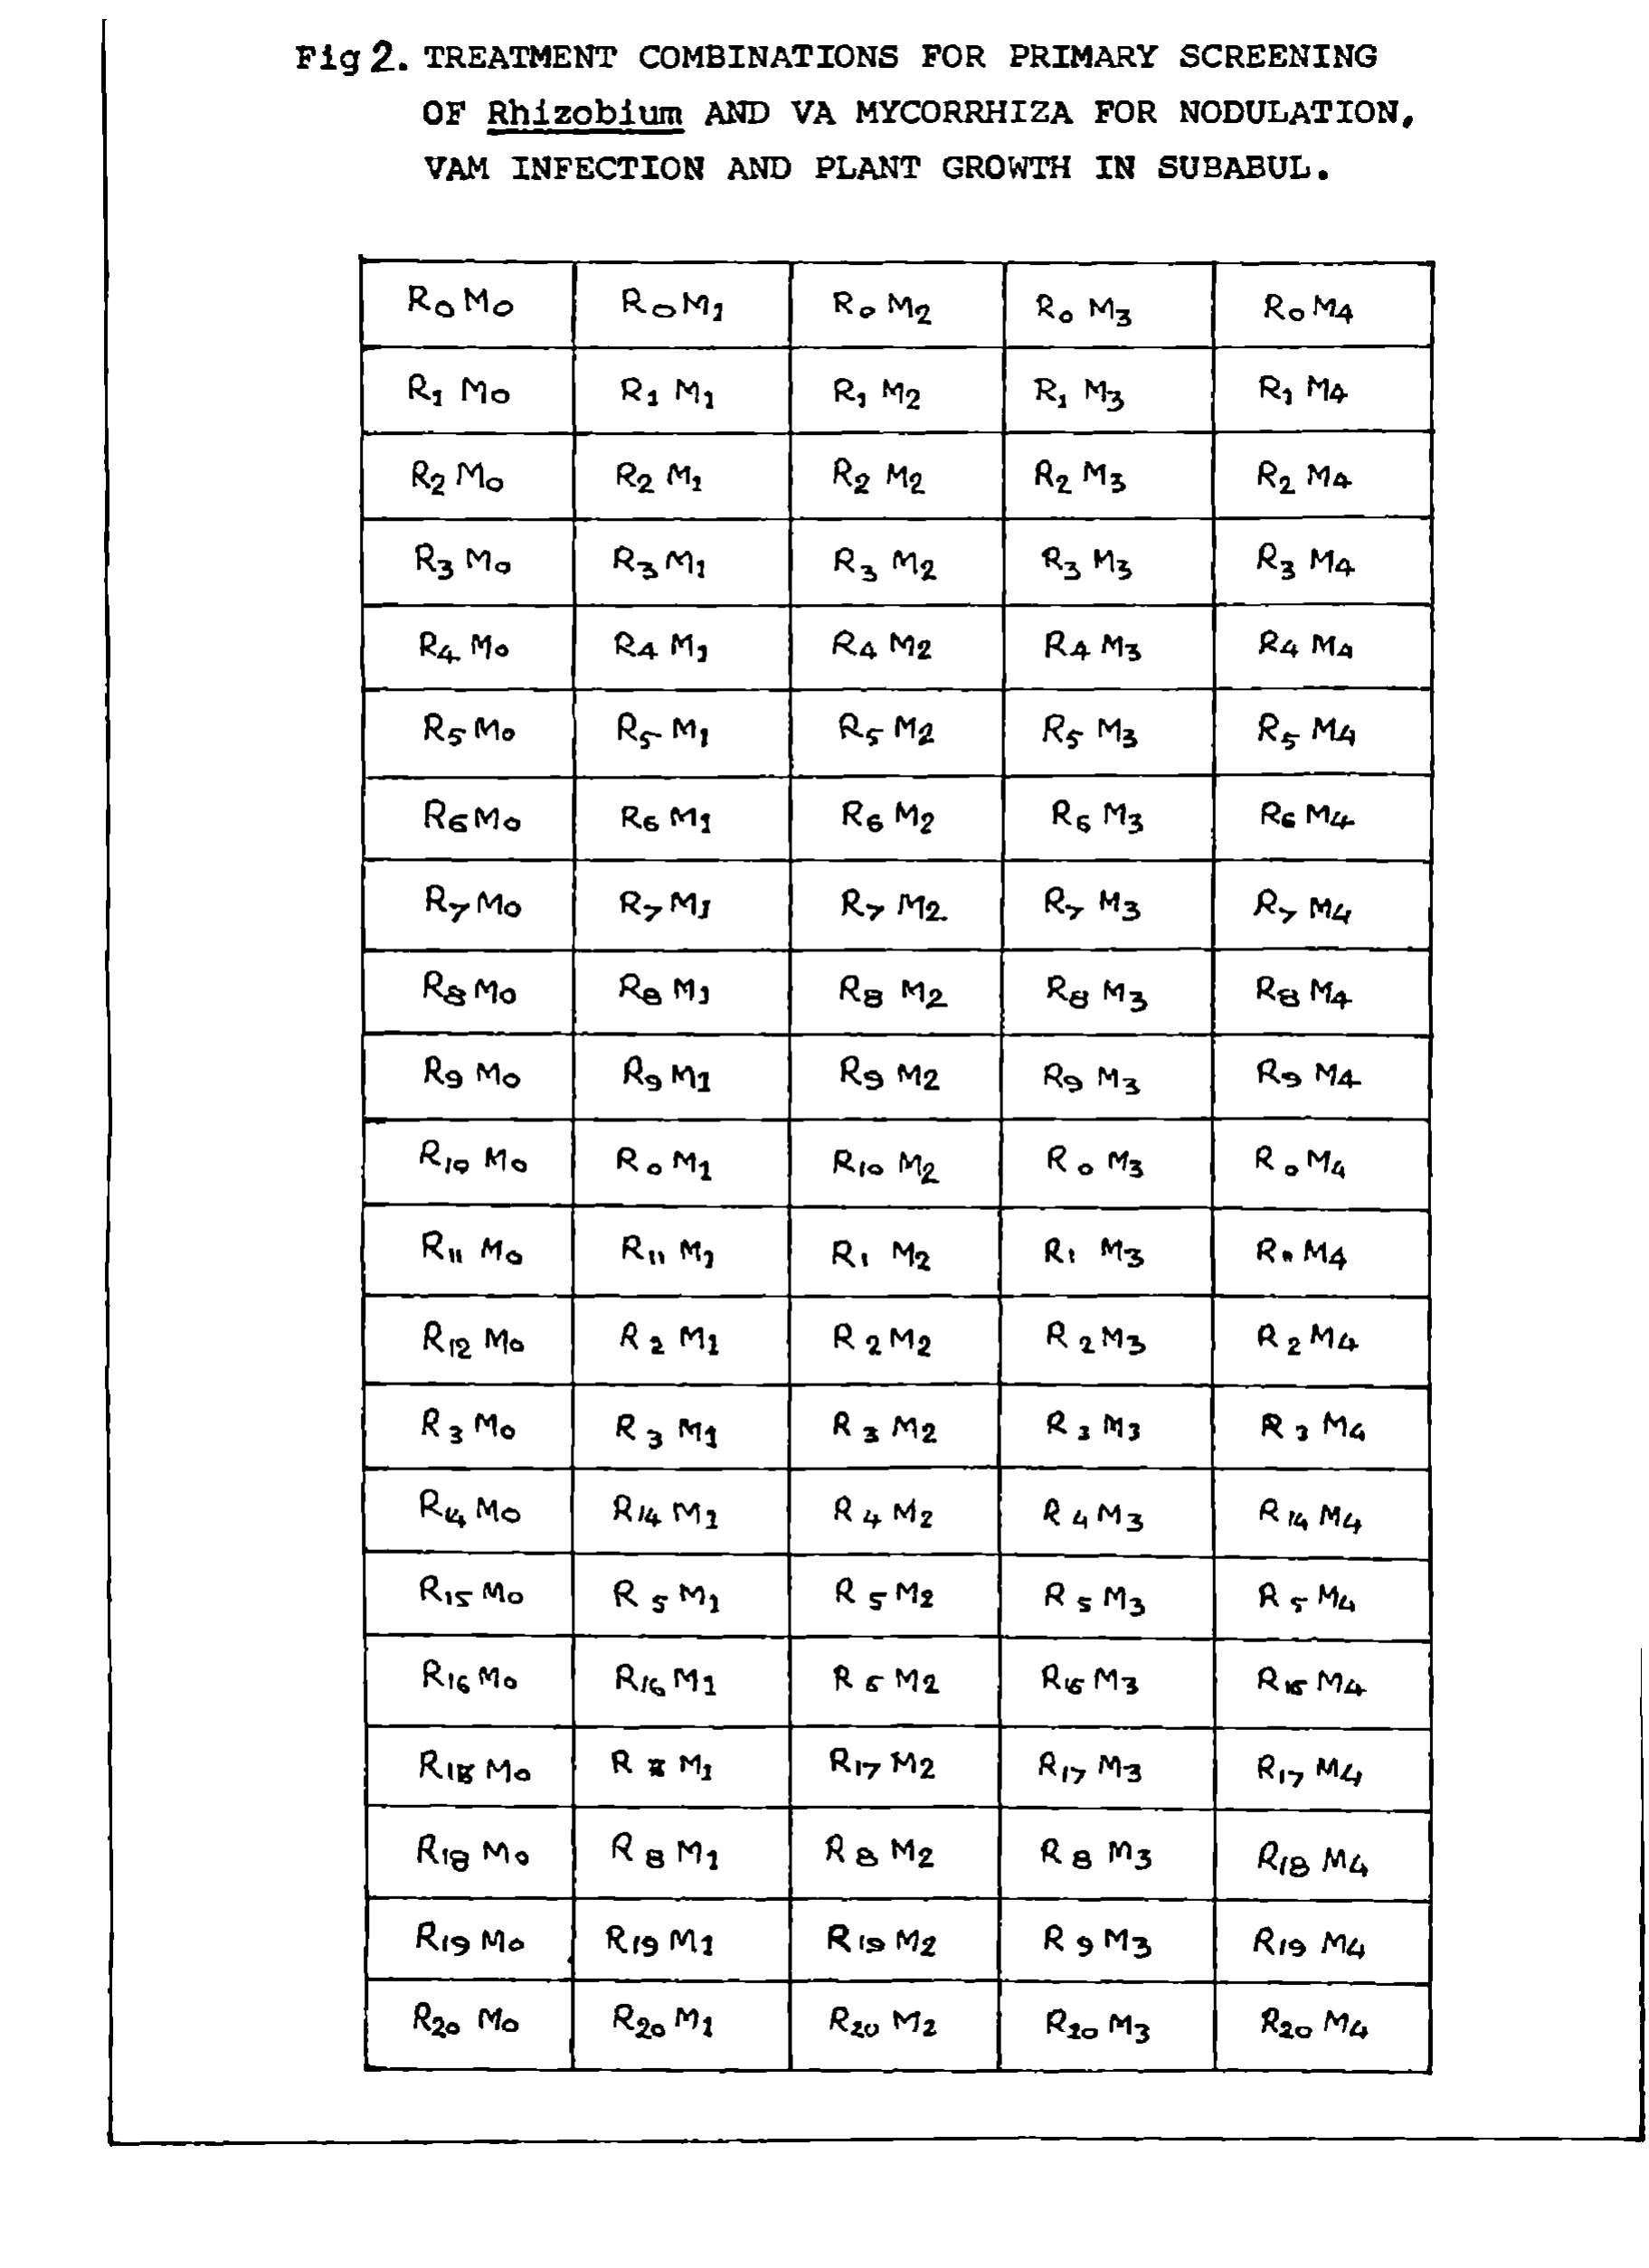 Fig 2. TREATMENT COMBINATIONS FOR PRIMARY SCREENING
OF Rhizobium AND VA MYCORRHIZA FOR NODULATION,
VAM INFECTION AND PLANT GROWTH IN SUBABUL.
R0 M0 R0 M1 R0 M2 R0 M3 R0 M4
R1 M0 R1 M1 R1 M2 R1 M3 R1 M4
R2 M0 R2 M1 R2 M2 R2 M3 R2 M4
R3 M0 R3 M1 R3 M2 R3 M3 R3 M4
R4 M0 R4 M1 R4 M2 R4 M3 R4 M4
R5 M0 R5 M1 R5 M2 R5 M3 R5 M4
R6 M0 R6 M1 R6 M2 R6 M3 R6 M4
R7 M0 R7 M1 R7 M2 R7 M3 R7 M4
R8 M0 R8 M1 R8 M2 R8 M3 R8 M4
R9 M0 R9 M1 R9 M2 R9 M3 R9 M4
R10 M0 R0 M1 R10 M2 R0 M3 R0 M4
R11 M0 R11 M1 R1 M2 R1 M3 R11 M4
R12 M0 R2 M1 R2 M2 R2 M3 R2 M4
R3 M0 R3 M1 R3 M2 R3 M3 R3 M4
R14 M0 R14 M1 R4 M2 R4 M3 R14 M4
R15 M0 R5 M1 R5 M2 R5 M3 R5 M4
R16 M0 R16 M1 R6 M2 R16 M3 R16 M4
R18 M0 R M1 R17 M2 R17 M3 R17 M4
R18 M0 R8 M1 R8 M2 R8 M3 R18 M4
R19 M0 R19 M1 R19 M2 R9 M3 R19 M4
R20 M0 R20 M1 R20 M2 R20 M3 R20 M4